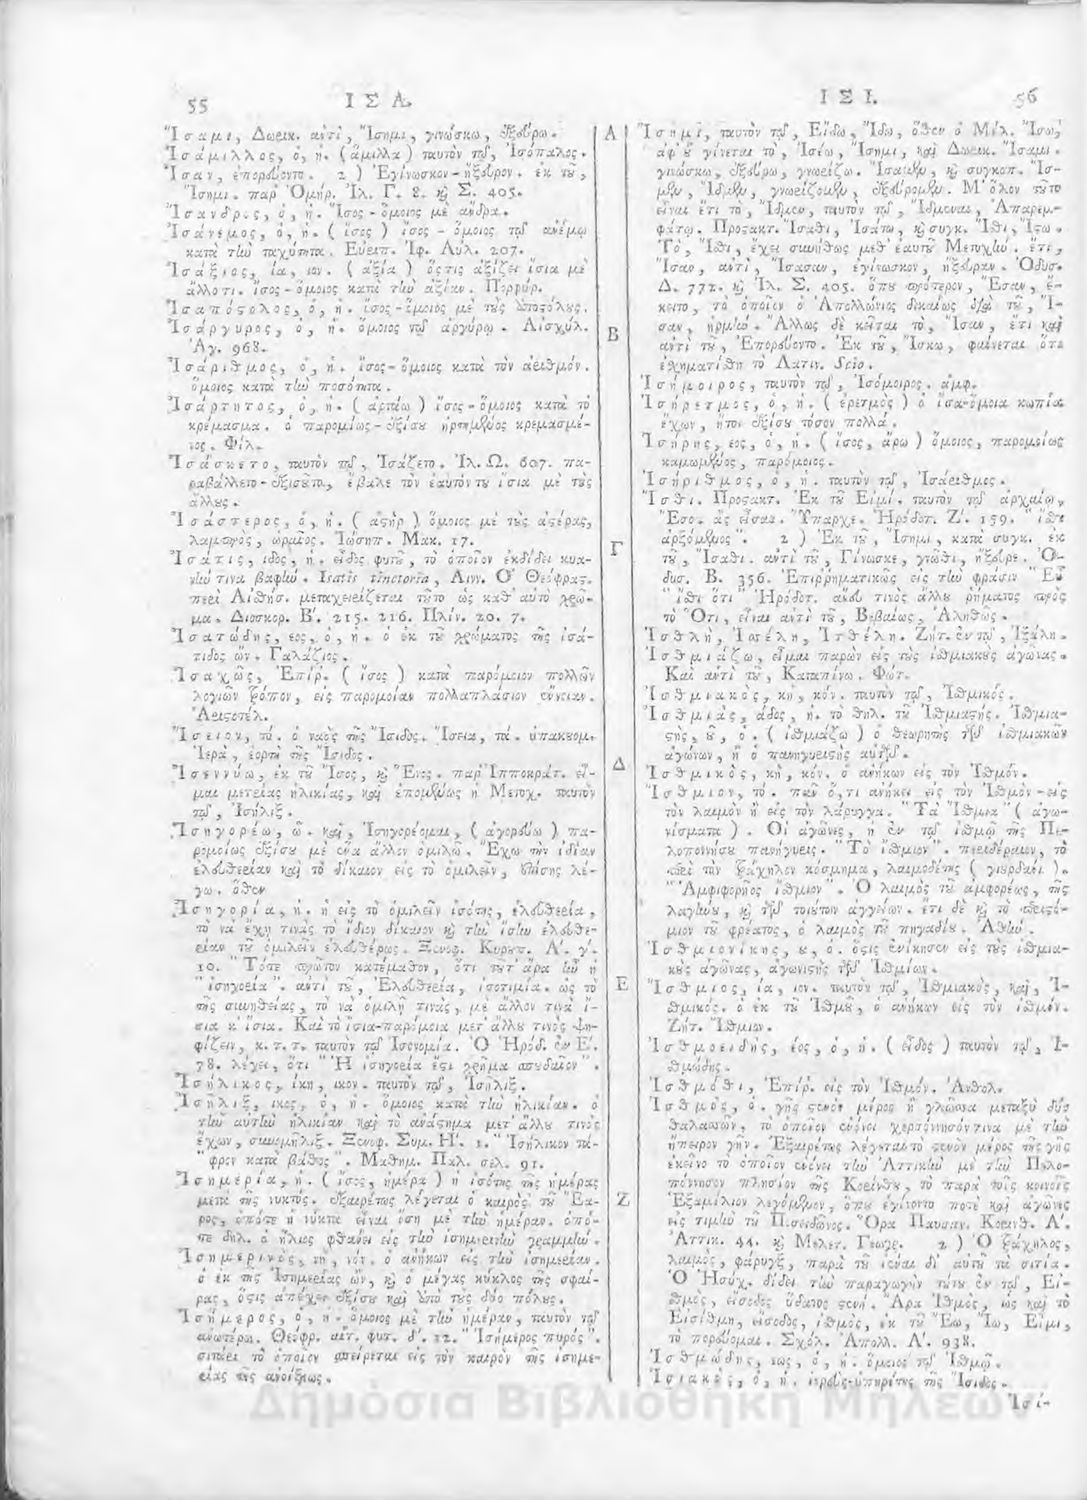 55 ΙΣΑ.
Ἴσαμι, Δωρικ. ἀντὶ, Ἴσημι, γινώσκω, ἐξεύρω.
Ἰσάμιλλος, ὁ, ἡ. (ἅμιλλα) ταυτὸν τῷ, Ἰσόπαλος.
Ἴσαν, ἐπορεύοντο. 2) Ἐγίνωσκον-ἤξευρον. ἐκ τοῦ,
Ἴσημι. παρ' Ὁμήρ. Ἰλ. Γ. 8. καὶ Σ. 405.
Ἴσανδρος, ὁ, ἡ. Ἴσος-ὅμοιος μὲ ἄνδρα.
Ἰσάνεμος, ὁ, ἡ. (ἴσος) ἴσος-ὅμοιος τῷ ἀνέμῳ
κατὰ τὴν ταχύτητα. Εὐριπ. Ἰφ. Αὐλ. 207.
Ἰσάξιος, ία, ιον. (ἀξία) ὅστις ἀξίζει ἴσια μὲ
ἄλλο τι. ἴσος-ὅμοιος κατὰ τὴν ἀξίαν. Πορφύρ.
Ἰσαπόστολος, ὁ, ἡ. ἴσος-ὅμοιος μὲ τοὺς ἀποστόλους.
Ἰσάργυρος, ὁ, ἡ. ὅμοιος τῷ ἀργύρῳ. Αἰσχύλ.
Ἀγ. 968.
Ἰσάριθμος, ὁ, ἡ. ἴσος-ὅμοιος κατὰ τὸν ἀριθμόν.
ὅμοιος κατὰ τὴν ποσότητα.
Ἰσάρτητος, ὁ, ἡ. (ἀρτάω) ἴσος-ὅμοιος κατὰ τὸ
κρέμασμα. ὁ παρομίως-ἐξίσου ἠρτημένος κρεμασμέ-
νος. Φίλ.
Ἰσάσκετο, ταυτὸν τῷ, Ἰσάζετο. Ἰλ. Ω. 607. πα-
ραβάλλετο-ἐξισοῦτο, ἔβαλε τὸν ἑαυτόν του ἴσια μὲ τοὺς
ἄλλους.
Ἰσάστερος, ὁ, ἡ. (ἀστὴρ) ὅμοιος μὲ τοὺς ἀστέρας,
λαμπρὸς, ὡραῖος. Ἰώσηπ. Μακ. 17.
Ἰσάτις, ιδος, ἡ. εἶδος φυτοῦ, τὸ ὁποῖον ἐκδίδει κυα-
νῆν τινα βαφήν. Isatis tinctoria, Λινν. Ὁ Θεόφρας.
περὶ Αἰσθήσ. μεταχειρίζεται τοῦτο ὡς καθ' αὑτὸ χρῶ-
μα. Διοσκορ. Β΄. 215. 216. Πλίν. 20. 7.
Ἰσατώδης, εος, ὁ, ἡ. ὁ ἐκ τοῦ χρώματος τῆς ἰσά-
τιδος ὤν. Γαλάζιος.
Ἰσαχῶς, Ἐπίρ. (ἴσος) κατὰ παρόμοιον πολλῶν
λογιῶν τρόπον, εἰς παρομοίαν πολλαπλάσιον ἔννοιαν.
Ἀριστοτέλ.
Ἴσειον, τό. ὁ ναὸς τῆς Ἴσιδος. Ἴσεια, τά. ὑπακουομ.
Ἱερὰ, ἑορτὴ τῆς Ἴσιδος.
Ἰσεννύω, ἐκ τοῦ Ἴσος, καὶ Ἕνος. παρ' Ἱπποκράτ. εἶ-
μαι μετρίας ἡλικίας, καὶ ἑπομένως ἡ Μετοχ. ταυτὸν
τῷ, Ἰσήλιξ.
Ἰσηγορέω, ῶ. καὶ, Ἰσηγορέομαι, (ἀγορεύω) πα-
ρομοίως ἐξίσου μὲ ἕνα ἄλλον ὁμιλῶ. Ἔχω τὴν ἰδίαν
ἐλευθερίαν καὶ τὸ δίκαιον εἰς τὸ ὁμιλεῖν, ἐπίσης λέ-
γω. ὅθεν
Ἰσηγορία, ἡ. ἡ εἰς τὸ ὁμιλεῖν ἰσότης, ἐλευθερία,
τὸ νὰ ἔχῃ τινὰς τὸ ἴδιον δίκαιον καὶ τὴν ἴσην ἐλευθε-
ρίαν τοῦ ὁμιλεῖν ἐλευθέρως. Ξενοφ. Κυροπ. Α΄. γ΄.
10. "Τότε πρῶτον κατέμαθον, ὅτι τοῦτ' ἄρα ἦν ἡ
"ἰσηγορία". ἀντὶ τοῦ, Ἐλευθερία, ἰσοτιμία. ὡς τὸ
τῆς συνηθείας, τὸ νὰ ὁμιλῇ τινὰς, μὲ ἄλλον τινὰ ἴ-
σια κ' ἴσια. Καὶ τὸ ἴσια-παρόμοια μετ' ἄλλου τινὸς ψη-
φίζειν, κ.τ.τ. ταυτὸν τῷ Ἰσονομία. Ὁ Ἡρόδ. ἐν Ε΄.
78. λέγει, ὅτι "Ἡ ἰσηγορία ἐστὶ χρῆμα σπουδαῖον".
Ἰσήλικος, ίκη, ικον. ταυτὸν τῷ, Ἰσήλιξ.
Ἰσήλιξ, ικος, ὁ, ἡ. ὅμοιος κατὰ τὴν ἡλικίαν. ὁ
τὴν αὐτὴν ἡλικίαν καὶ τὸ ἀνάστημα μετ' ἄλλου τινὸς
ἔχων, συνομῆλιξ. Ξενοφ. Συμ. Η΄. 1. "Ἰσήλικον τά-
"φρον κατὰ βάθος". Μαθημ. Παλ. σελ. 91.
Ἰσημερία, ἡ. (ἴσος, ἡμέρα) ἡ ἰσότης τῆς ἡμέρας
μετὰ τῆς νυκτός. ἐξαιρέτως λέγεται ὁ καιρὸς τοῦ Ἔα-
ρος, ὁπότε ἡ νύκτα εἶναι ὅση μὲ τὴν ἡμέραν. ὁπό-
τε δηλ. ὁ ἥλιος φθάνει εἰς τὴν ἰσημερινὴν γραμμήν.
Ἰσημερινὸς, νὴ, νόν. ὁ ἀνήκων εἰς τὴν ἰσημερίαν.
ὁ ἐκ τῆς Ἰσημερίας ὢν, καὶ ὁ μέγας κύκλος τῆς σφαί-
ρας, ὅστις ἀπέχει ἐξίσου καὶ ἀπὸ τοὺς δύο πόλους.
Ἰσήμερος, ὁ, ἡ. ὅμοιος μὲ τὴν ἡμέραν, ταυτὸν τῷ
ἀνωτέρω. Θεόφρ. αἰτ. φυτ. δ΄. 12. "Ἰσήμερος πυρός".
σιτάρι τὸ ὁποῖον σπείρεται εἰς τὸν καιρὸν τῆς ἰσημε-
ρίας τῆς ἀνοίξεως.
Α
Β
Γ
Δ
Ε
Ζ
ΙΣΙ. 56
Ἴσημι, ταυτὸν τῷ, Εἴδω, Ἴδω, ὅθεν ὁ Μέλ. Ἴσω,
ἀφ' οὗ γίνεται τὸ, Ἰσέω, Ἴσημι, καὶ Δωρικ. Ἴσαμι.
γινώσκω, ἐξεύρω, γνωρίζω. Ἴσαμεν, καὶ συγκοπ. Ἴσ-
μεν, Ἴδμεν, γνωρίζομεν, ἐξεύρομεν. Μ' ὅλον τοῦτο
εἶναι ἔτι τὸ, Ἴδμεν, ταυτὸν τῷ, Ἴδμεναι, Ἀπαρεμ-
φάτῳ. Προςακτ. Ἴσαθι, Ἰσάτω, καὶ συγκ. Ἴσθι, Ἴστω.
Τὸ, Ἴσθι, ἔχει συνήθως μεθ' ἑαυτοῦ Μετοχήν. ἔτι,
Ἴσαν, ἀντὶ, Ἴσασαν, ἐγίνωσκον, ἤξευραν. Ὀδυσ.
Δ. 772. καὶ Ἰλ. Σ. 405. ὅπου πρότερον, Ἔσαν, ἔ-
κειτο, τὸ ὁποῖον ὁ Ἀπολλώνιος δικαίως διὰ τοῦ, Ἴ-
σαν, ἡρμήν. Ἄλλως δὲ κεῖται τὸ, Ἴσαν, ἔτι καὶ
ἀντὶ τοῦ, Ἐπορεύοντο. Ἐκ τοῦ, Ἴσκω, φαίνεται ὅτι
ἐσχηματίσθη τὸ Λατιν. Scio.
Ἰσήμοιρος, ταυτὸν τῷ, Ἰσόμοιρος. ἀμφ.
Ἰσήρετμος, ὁ, ἡ. (ἐρετμὸς) ὁ ἴσα-ὅμοια κωπία
ἔχων, ἤτοι ἐξίσου τόσον πολλά.
Ἰσήρης, εος, ὁ, ἡ. (ἴσος, ἄρω) ὅμοιος, παρομοίως
καμωμένος, παρόμοιος.
Ἰσήριθμος, ὁ, ἡ. ταυτὸν τῷ, Ἰσάριθμος.
Ἴσθι. Προςακτ. Ἐκ τοῦ Εἰμί. ταυτὸν τῷ ἀρχαίῳ,
Ἔσο. ἂς εἶσαι. Ὕπαρχε. Ἡρόδοτ. Ζ΄. 159. "ἴσθι
ἀρξόμενος". 2) Ἐκ τοῦ, Ἴσημι, κατὰ συγκ. ἐκ
τοῦ, Ἴσαθι. ἀντὶ τοῦ, Γίνωσκε, γνῶθι, ἤξευρε. Ὀ-
δυσ. Β. 356. Ἐπιρρηματικῶς εἰς τὴν φράσιν "Εὖ
"ἴσθι ὅτι" Ἡρόδοτ. ἄνευ τινὸς ἄλλου ῥήματος πρὸς
τὸ Ὅτι, εἶναι ἀντὶ τοῦ, Βεβαίως, Ἀληθῶς.
Ἰσθλὴ, Ἰσσέλη, Ἰτθέλη. Ζήτ. ἐν τῷ, Ἰξάλη.
Ἰσθμιάζω, εἶμαι παρὼν εἰς τοὺς ἰσθμιακοὺς ἀγῶνας.
Καὶ ἀντὶ τοῦ, Καταπίνω. Φώτ.
Ἰσθμιακὸς, κὴ, κόν. ταυτὸν τῷ, Ἰσθμικός.
Ἰσθμιὰς, άδος, ἡ. τὸ θηλ. τοῦ Ἰσθμιαστής. Ἰσθμια-
στὴς, οῦ, ὁ. (ἰσθμιάζω) ὁ θεωρητὴς τῶν ἰσθμιακῶν
ἀγώνων, ἢ ὁ πανηγυριστὴς αὐτῶν.
Ἰσθμικὸς, κὴ, κόν. ὁ ἀνήκων εἰς τὸν Ἰσθμόν.
Ἴσθμιον, τό. πᾶν ὅ,τι ἀνήκει εἰς τὸν Ἰσθμὸν-εἰς
τὸν λαιμὸν ἢ εἰς τὸν λάρυγγα. "Τὰ Ἴσθμια" (ἀγω-
νίσματα). Οἱ ἀγῶνες, ἡ ἐν τῷ ἰσθμῷ τῆς Πε-
λοποννήσου πανήγυρις. "Τὸ ἴσθμιον". περιδέραιον, τὸ
περὶ τὸν τράχηλον κόσμημα, λαιμοδέτης (γιορδάνι).
"Ἀμφιφορῆος ἴσθμιον". Ὁ λαιμὸς τοῦ ἀμφορέως, τῆς
λαγήνου, καὶ τῶν τοιούτων ἀγγείων. ἔτι δὲ καὶ τὸ περιστό-
μιον τοῦ φρέατος, ὁ λαιμὸς τοῦ πηγαδίου. Ἀθήν.
Ἰσθμιονίκης, ου, ὁ. ὅστις ἐνίκησεν εἰς τοὺς ἰσθμια-
κοὺς ἀγῶνας, ἀγωνιστὴς τῶν Ἰσθμίων.
Ἴσθμιος, ία, ιον. ταυτὸν τῷ, Ἰσθμιακὸς, καὶ, Ἰ-
σθμικός. ὁ ἐκ τοῦ Ἰσθμοῦ, ὁ ἀνήκων εἰς τὸν ἰσθμόν.
Ζήτ. Ἴσθμιον.
Ἰσθμοειδὴς, έος, ὁ, ἡ. (εἶδος) ταυτὸν τῷ, Ἰ-
σθμώδης.
Ἰσθμόθι, Ἐπίρ. εἰς τὸν Ἰσθμόν. Ἀνθολ.
Ἰσθμὸς, ὁ. γῆς στενὸν μέρος ἢ γλῶσσα μεταξὺ δύο
θαλασσῶν, τὸ ὁποῖον ἑνόνει χερσόνησόν τινα μὲ τὴν
ἤπειρον γῆν. Ἐξαιρέτως λέγεται τὸ στενὸν μέρος τῆς γῆς
ἐκεῖνο τὸ ὁποῖον ἑνόνει τὴν Ἀττικὴν μὲ τὴν Πελο-
πόννησον πλησίον τῆς Κορίνθου, τὸ παρὰ τοῖς κοινοῖς
Ἑξαμίλιον λεγόμενον, ὅπου ἐγίνοντο ποτὲ καὶ ἀγῶνες
εἰς τιμὴν τοῦ Ποσειδῶνος. Ὅρα Παυσαν. Κορινθ. Α΄.
Ἀττικ. 44. καὶ Μελετ. Γεωγρ. 2) Ὁ τράχηλος,
λαιμὸς, φάρυγξ, παρὰ τὸ ἰέναι δι' αὐτοῦ τὰ σιτία.
Ὁ Ἡσύχ. δίδει τὴν παραγωγὴν τούτου ἐν τῷ, Εἰ-
σθμὸς, εἴσοδος ὕδατος στενή. Ἄρα Ἰσθμὸς, ὡς καὶ τὸ
Εἰσίθμη, εἴσοδος, ἰσθμὸς, ἐκ τοῦ Ἔω, Ἴω, Εἶμι,
τὸ πορεύομαι. Σχόλ. Ἀπολλ. Α΄. 938.
Ἰσθμώδης, εως, ὁ, ἡ. ὅμοιος τῷ Ἰσθμῷ.
Ἰσιακὸς, ὁ, ἡ. ἱερεὺς-ὑπηρέτης τῆς Ἴσιδος.
Ἰσί-
Δημόσια Βιβλιοθήκη Μηλεών